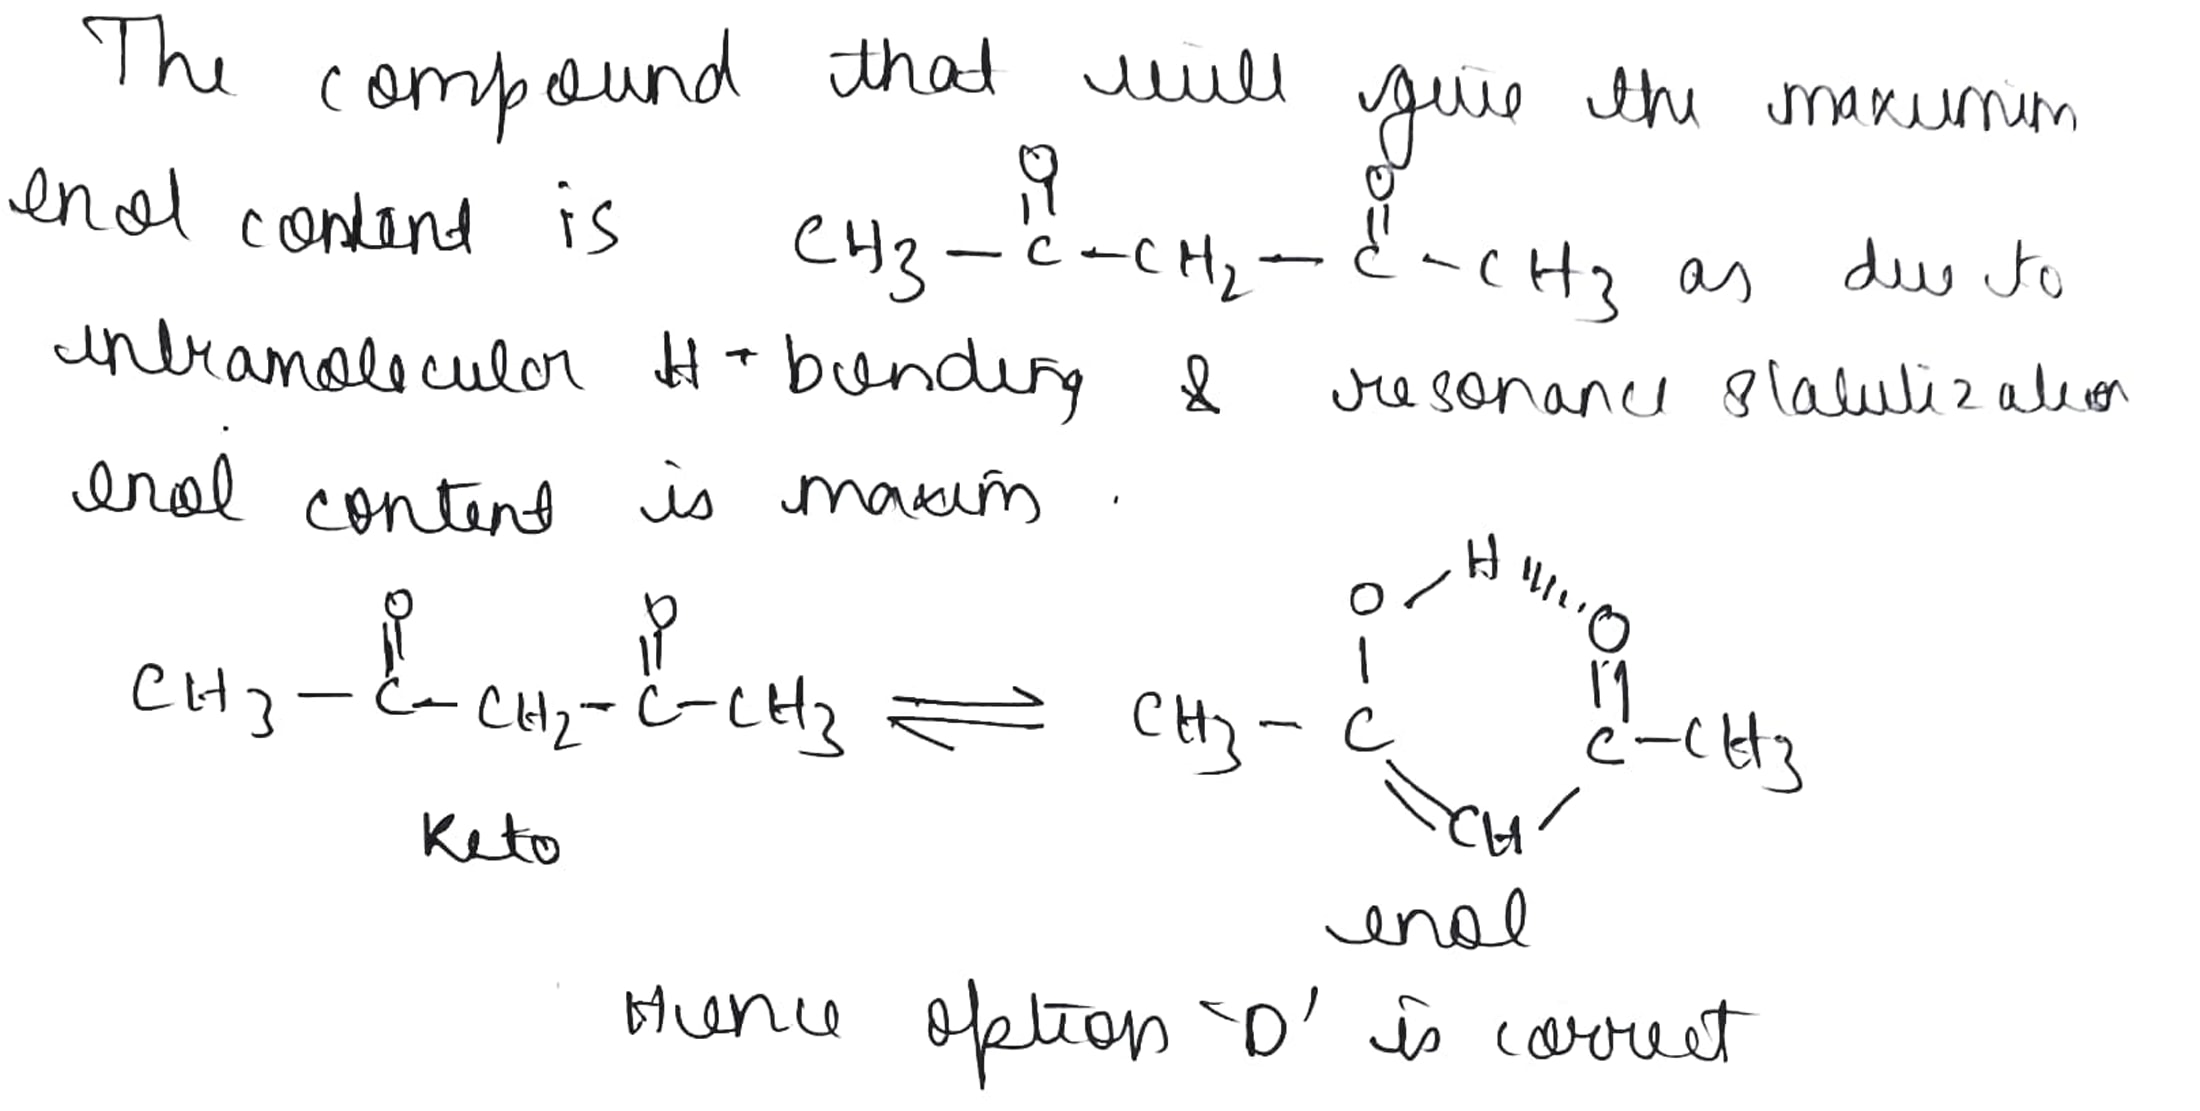 The compound that will give the maximum
enol content is CH3 – C(=O) – CH2 – C(=O) – CH3 as due to
intramolecular H-bonding & resonance stabilization
enol content is maxim.
CH3 – C(=O) – CH2 – C(=O) – CH3 ⇌ CH3 – C(–O–H·····O=)=CH–C–CH3
Keto
enol
Hence option 'D' is correct